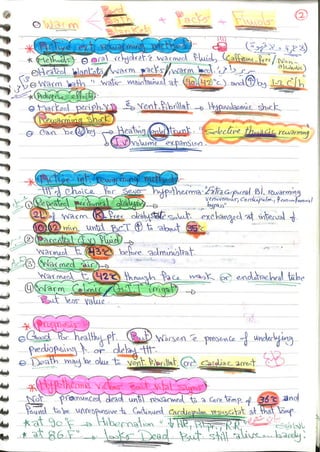 ②
Warm Bed + Packs + Fluids
* Active ext. rewarming methods
* Methods: ① oral rehydrat° & warmed Fluids, (Caffeine Free / Non-alcoholic)
② Heated blankets / warm packs / warm bed
③ Warm bath → water maintained at 40 (42°C) and ↑ by 1-2°C/h
* Adverse effects:
① Marked periph. V.D → Vent. Fibrillat° → Hypovolaemic shock
Rewarming Shock
② Can be ↓ by → Heating only trunk "Selective thoracic rewarming"
→ I.V volume expansion.
* Active int. rewarming methods
ttt of Choice for Severe hypotherma: Extracorporeal Bl. rewarming
① Repeated peritoneal dialysis
2L of warm K Free dialysate solut° exchanged at interval of
10, 12 min. until BCT ↑ to about 35°C
② Parental I.V Fluid
Warmed to 43°C before administrat°
③ Warmed air
Warmed to 42°C through Face mask or endotracheal tube
④ Warm Colonic / G.I.T irrigat°
But less value.
* Prognosis
① Good for healthy pt. But Worsen & presence of underlying
predisposing F. or delay ttt.
② Death may be due to Vent. Fibrillat° or Cardiac arrest
* Hypothermia victims
Not pronounced dead until rewarmed to a core temp. of 36°C and
Found to be unresponsive to Continued Cardiopulm. resuscitat° at that temp.
* at 90°F → Hibernation "↓ HR, Bl.pr., RR"
* at 86°F → Looks Dead But still alive..... barely!